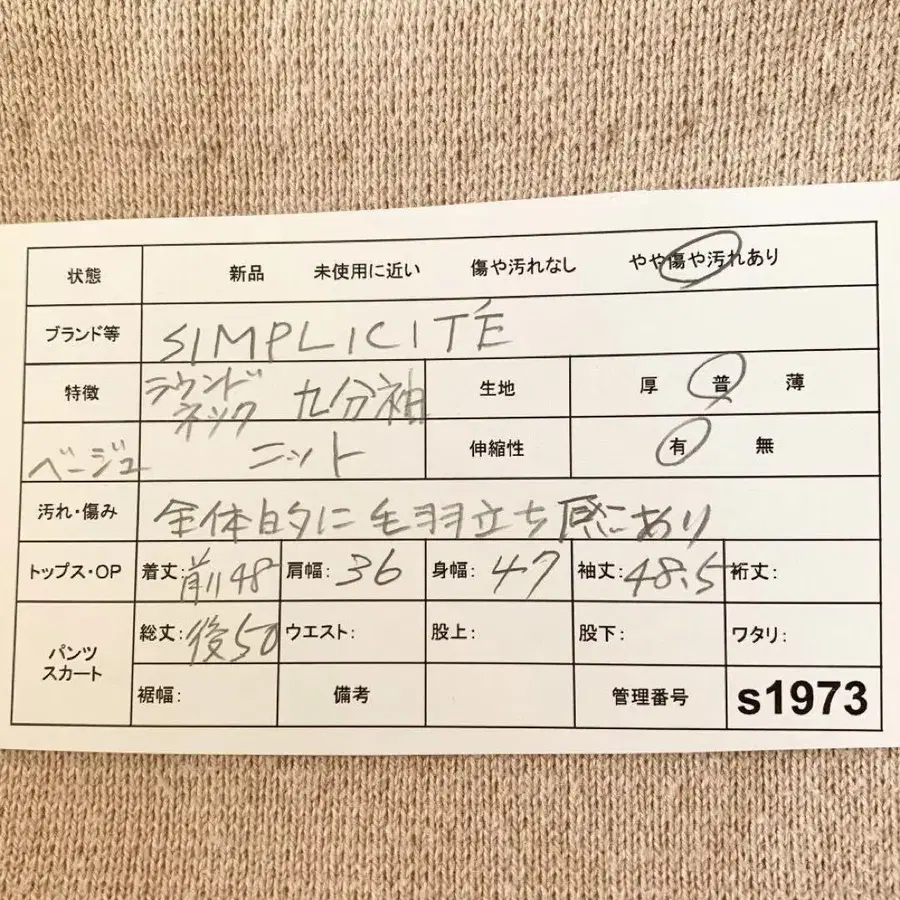 状態 新品 未使用に近い 傷や汚れなし やや傷や汚れあり
ブランド等 SIMPLICITÉ
特徴 ラウンドネック 九分袖 生地 厚 普 薄
ベージュ ニット 伸縮性 有 無
汚れ・傷み 全体的に毛羽立ち感あり
トップス・OP 着丈:前48 肩幅:36 身幅:47 袖丈:48.5 裄丈:
パンツ スカート 総丈:後50 ウエスト: 股上: 股下: ワタリ:
裾幅: 備考 管理番号 s1973